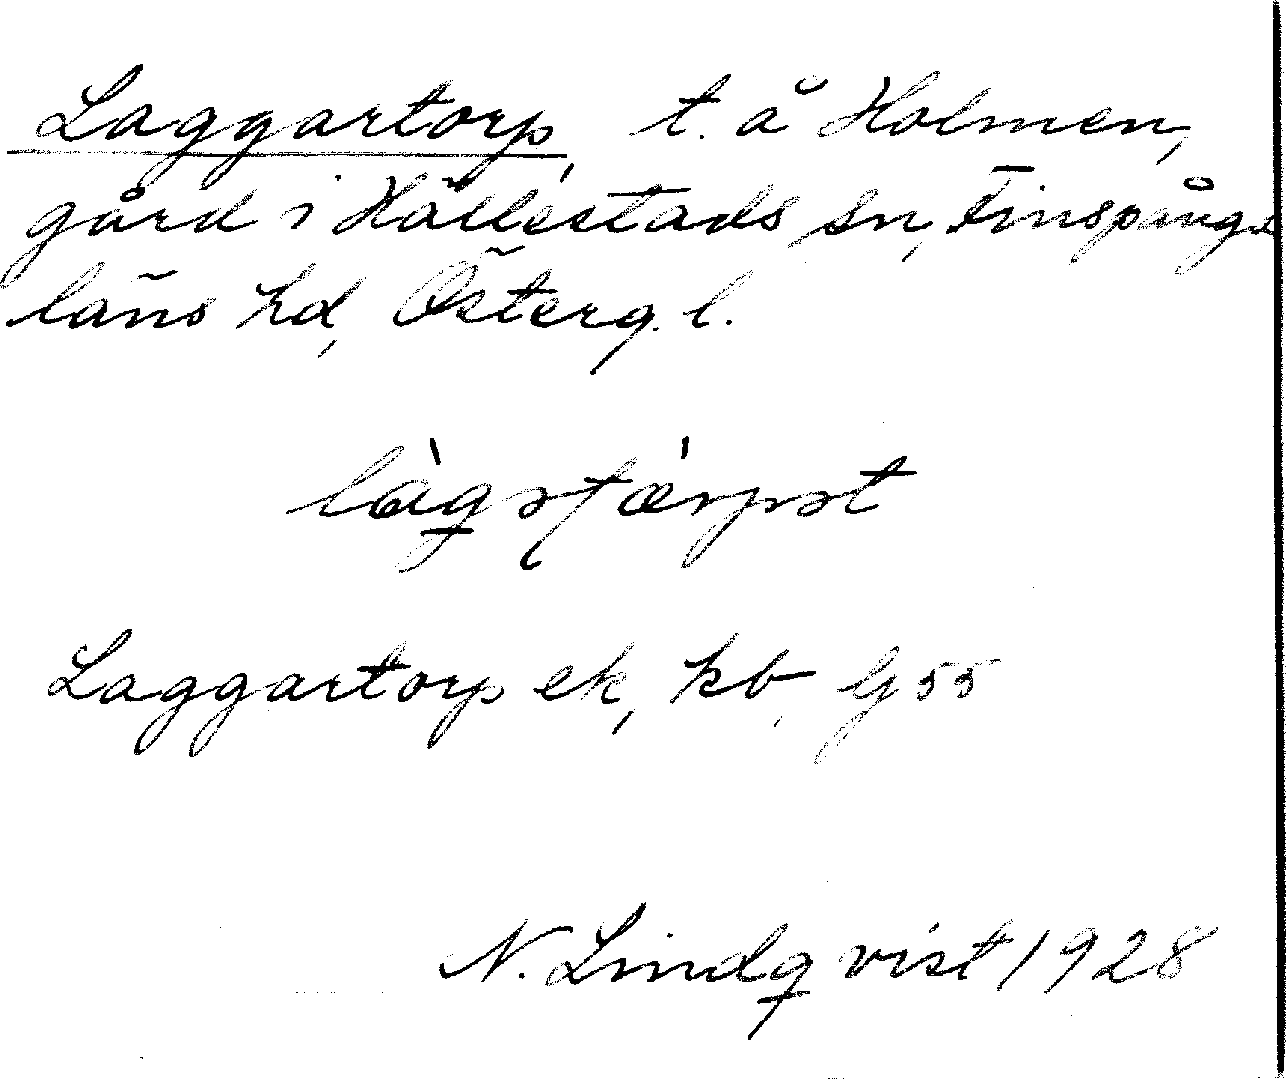 Laggartorp, t. å Holmen,
gård i Hällestads sn, Finspånga
läns hd, Österg. l.
Laggartorp ek, kb, G 55
N. Lindqvist 1928